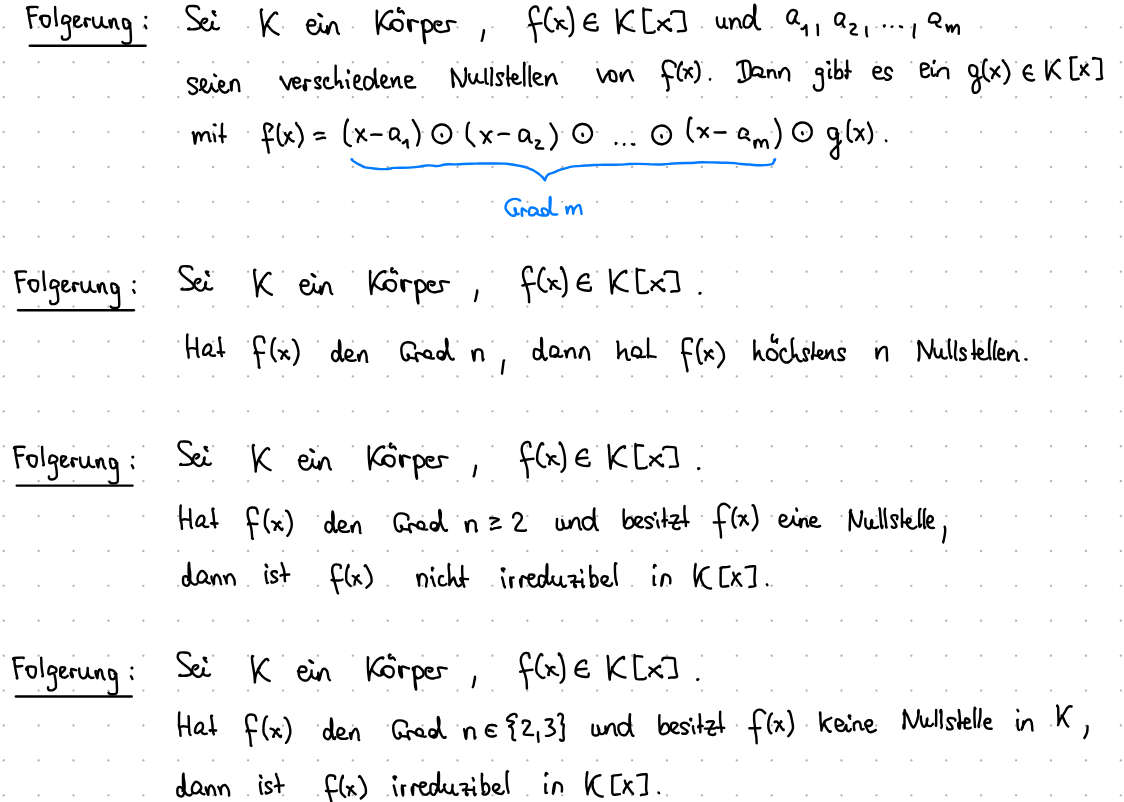 Folgerung: Sei K ein Körper, f(x) ∈ K[x] und a₁, a₂, ..., aₘ
seien verschiedene Nullstellen von f(x). Dann gibt es ein g(x) ∈ K[x]
mit f(x) = (x-a₁) ⊙ (x-a₂) ⊙ ... ⊙ (x-aₘ) ⊙ g(x).
Grad m
Folgerung: Sei K ein Körper, f(x) ∈ K[x].
Hat f(x) den Grad n, dann hat f(x) höchstens n Nullstellen.
Folgerung: Sei K ein Körper, f(x) ∈ K[x].
Hat f(x) den Grad n ≥ 2 und besitzt f(x) eine Nullstelle,
dann ist f(x) nicht irreduzibel in K[x].
Folgerung: Sei K ein Körper, f(x) ∈ K[x].
Hat f(x) den Grad n ∈ {2,3} und besitzt f(x) keine Nullstelle in K,
dann ist f(x) irreduzibel in K[x].